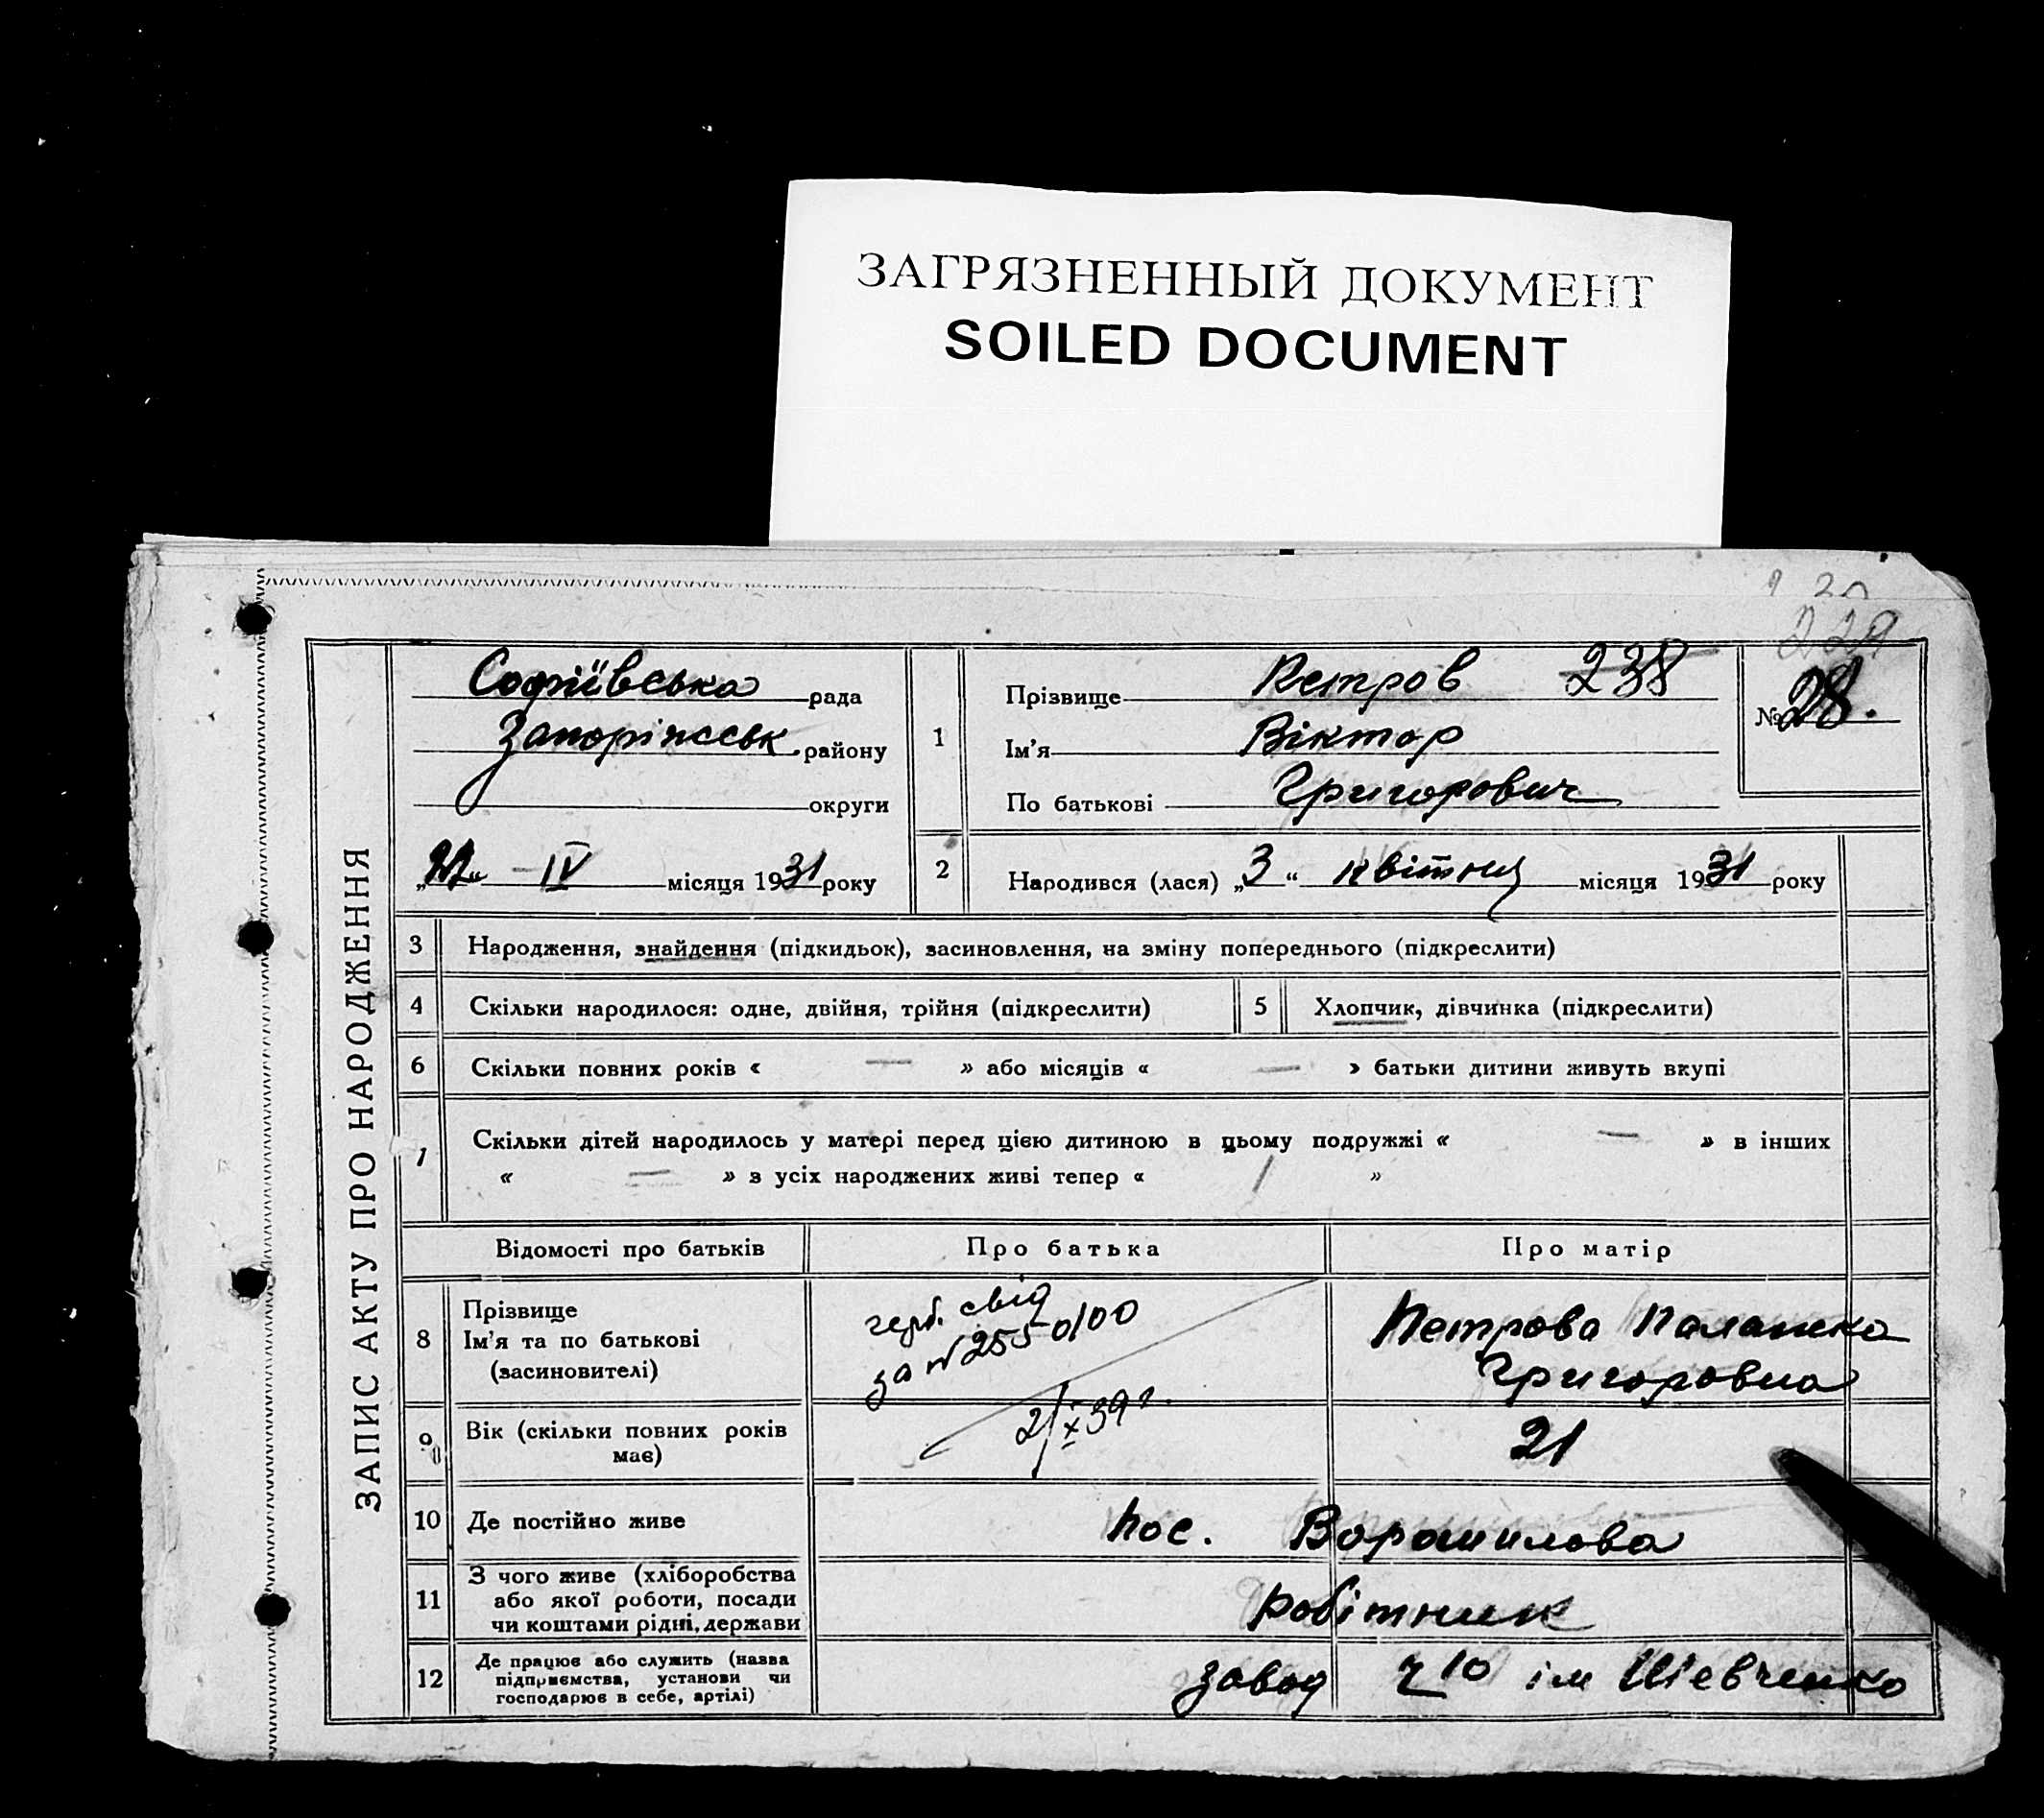 ЗАГРЯЗНЕННЫЙ ДОКУМЕНТ
SOILED DOCUMENT
229
ЗАПИС АКТУ ПРО НАРОДЖЕННЯ
Софіївська рада
Запоріжськ. району
округи
"22" IV місяця 1931 року
1
Прізвище Петров 238
Ім'я Віктор
По батькові Григорович
№ 28.
2 Народився (лася) „3“ квітня місяця 1931 року
3 Народження, знайдення (підкидьок), засиновлення, на зміну попереднього (підкреслити)
4 Скільки народилося: одне, двійня, трійня (підкреслити) 5 Хлопчик, дівчинка (підкреслити)
6 Скільки повних років « — » або місяців « — » батьки дитини живуть вкупі
Скільки дітей народилось у матері перед цією дитиною в цьому подружжі « — » в інших
« — » з усіх народжених живі тепер « / »
Відомості про батьків Про батька Про матір
8 Прізвище
Ім'я та по батькові
(засиновителі)
герб. свід
за № 2550100
Петрова Палажка
Григоровна
9 Вік (скільки повних років
має)
21/X 39 г.
21
10 Де постійно живе пос. Ворошилова
11 З чого живе (хліборобства
або якої роботи, посади
чи коштами рідні, держави
робітник
12 Де працює або служить (назва
підприємства, установи чи
господарює в себе, артілі)
завод ч 10 ім Шевченко